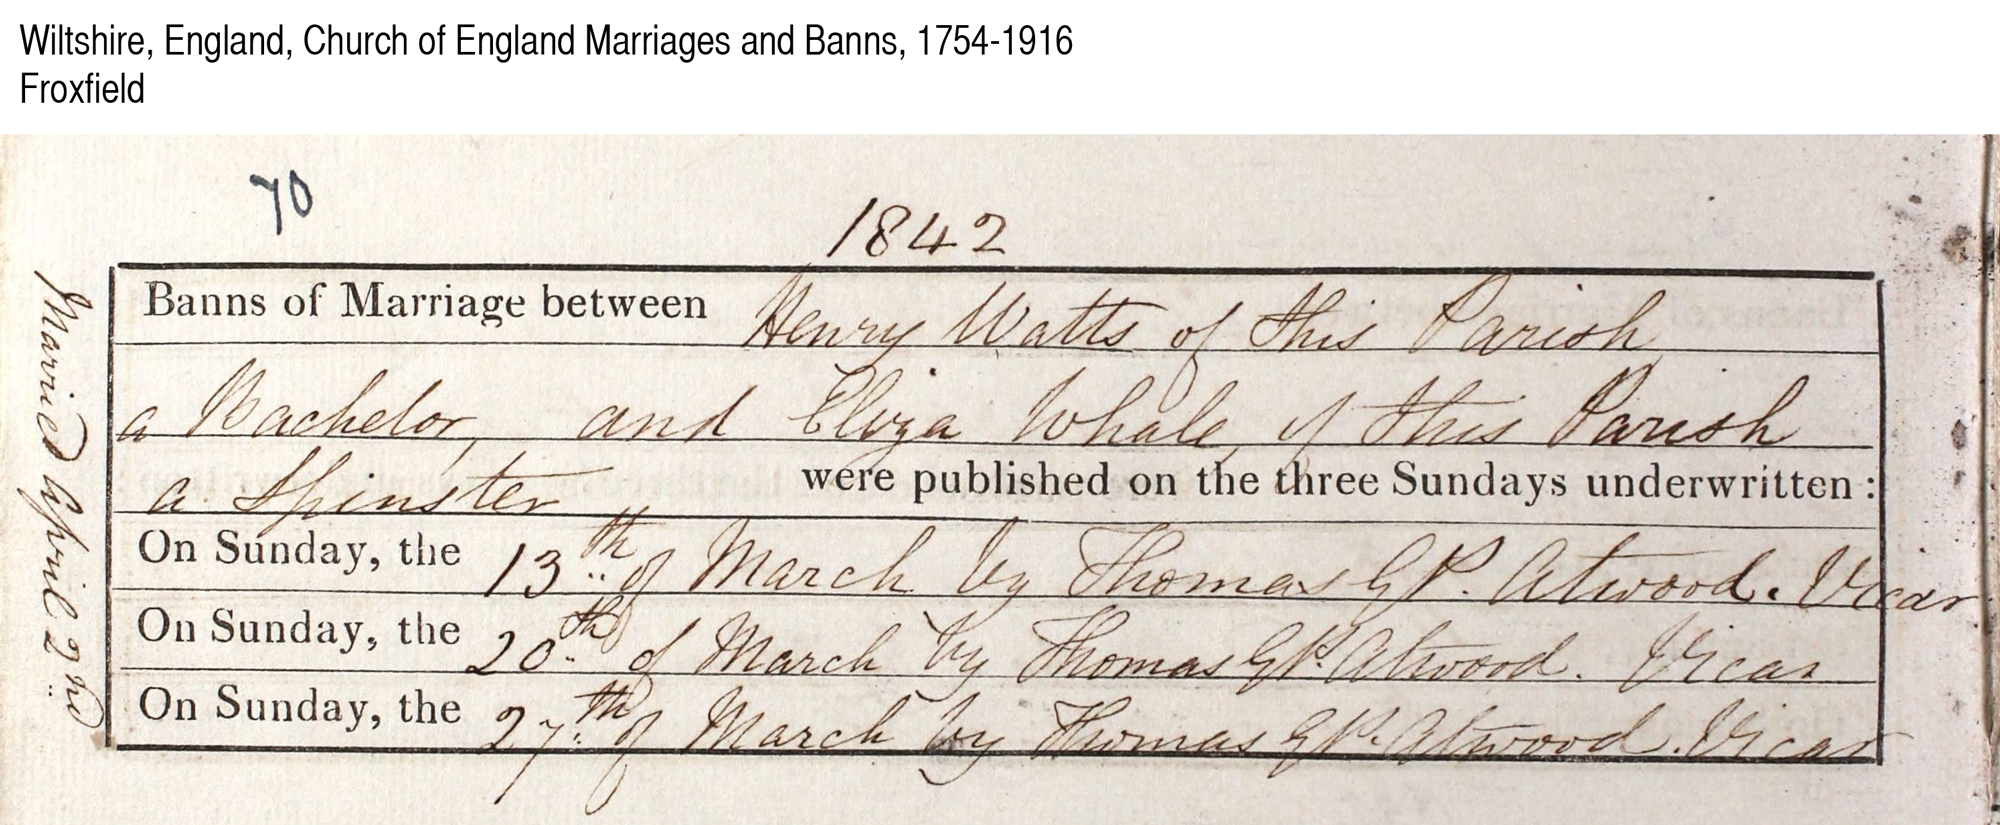 Wiltshire, England, Church of England Marriages and Banns, 1754-1916
Froxfield
70
1842
Banns of Marriage between Henry Watts of this Parish
a Bachelor, and Eliza Whale, of this Parish
a Spinster were published on the three Sundays underwritten :
On Sunday, the 13th of March by Thomas G P. Atwood. Vicar
On Sunday, the 20th of March by Thomas G P. Atwood. Vicar
On Sunday, the 27th of March by Thomas G P. Atwood. Vicar
Married April 2nd